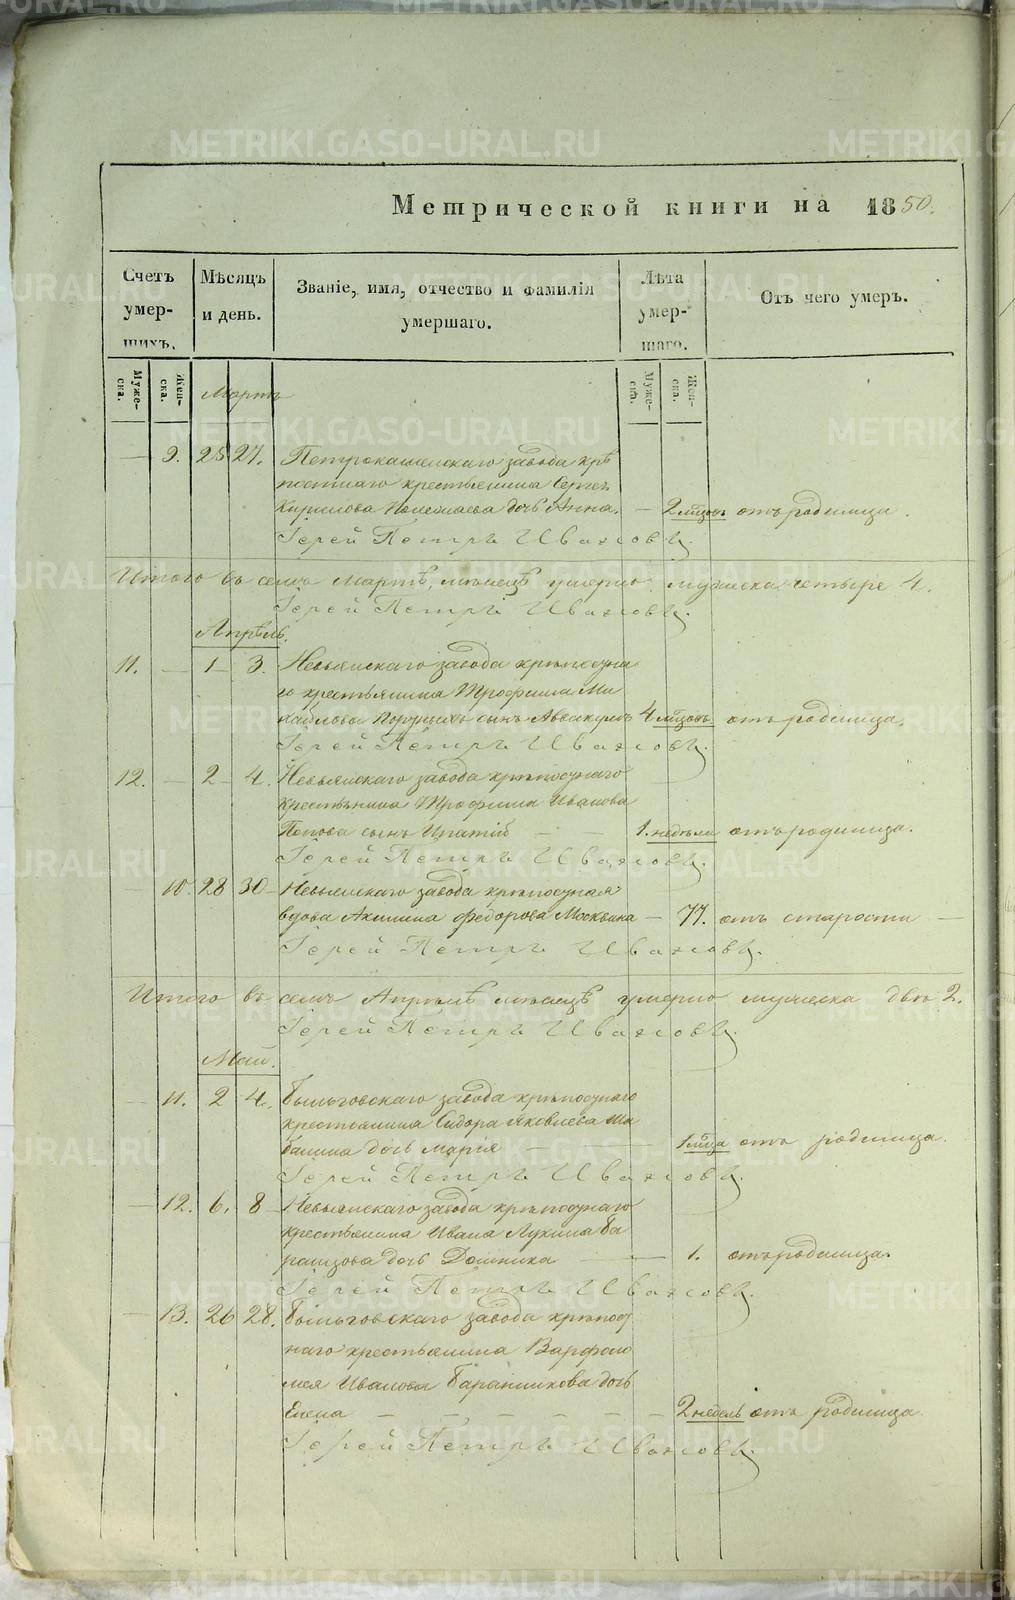 Метрической книги на 1850.
Счетъ умер-шихъ.
Мѣсяцъ и день.
Званіе, имя, отчество и фамилія умершаго.
Лѣта умер-шаго.
Отъ чего умеръ.
Муже-ска.
Жен-ска.
Муже-ска.
Жен-ска.
Мартъ
— 9. 25 27. Петрокаменскаго завода крѣ
постнаго крестьянина Сергея
Кирилова дочь Анна. — 2 мѣсяцъ отъ родимца.
Іерей Петръ Ивановъ.
Итого въ семъ Мартѣ мѣсяцѣ умерло мужеска четыре 4.
Іерей Петръ Ивановъ.
Апрѣль.
11. — 1 3. Невьянскаго завода крѣпостна
го крестьянина Трофима Ми
хайлова сынъ Аввакумъ 4 мѣсяцъ отъ родимца.
Іерей Петръ Ивановъ.
12. — 2 4. Невьянскаго завода крѣпостнаго
крестьянина Трофима Иванова
Попова сынъ Ипатій — — 1. недѣли отъ родимца.
Іерей Петръ Ивановъ.
— 10. 28 30 Невьянскаго завода крѣпостная
вдова Акилина Федорова Москвина — 77. отъ старости —
Іерей Петръ Ивановъ.
Итого въ семъ Апрѣлѣ мѣсяцѣ умерло мужеска два 2.
Іерей Петръ Ивановъ.
Май.
— 11. 2 4. Быньговскаго завода крѣпостнаго
крестьянина Сидора Яковлева Ша
балина дочь Марія — — 1 мѣсяца отъ родимца.
Іерей Петръ Ивановъ.
— 12. 6. 8 Невьянскаго завода крѣпостнаго
крестьянина Ивана Лукина
дочь Домника — — 1. отъ родимца.
Іерей Петръ Ивановъ.
— 13. 26 28. Быньговскаго завода крѣпост
наго крестьянина Варфоло
мея Иванова Баранникова дочь
Елена — — — — — 2 недель отъ родимца.
Іерей Петръ Ивановъ.
METRIKI.GASO-URAL.RU